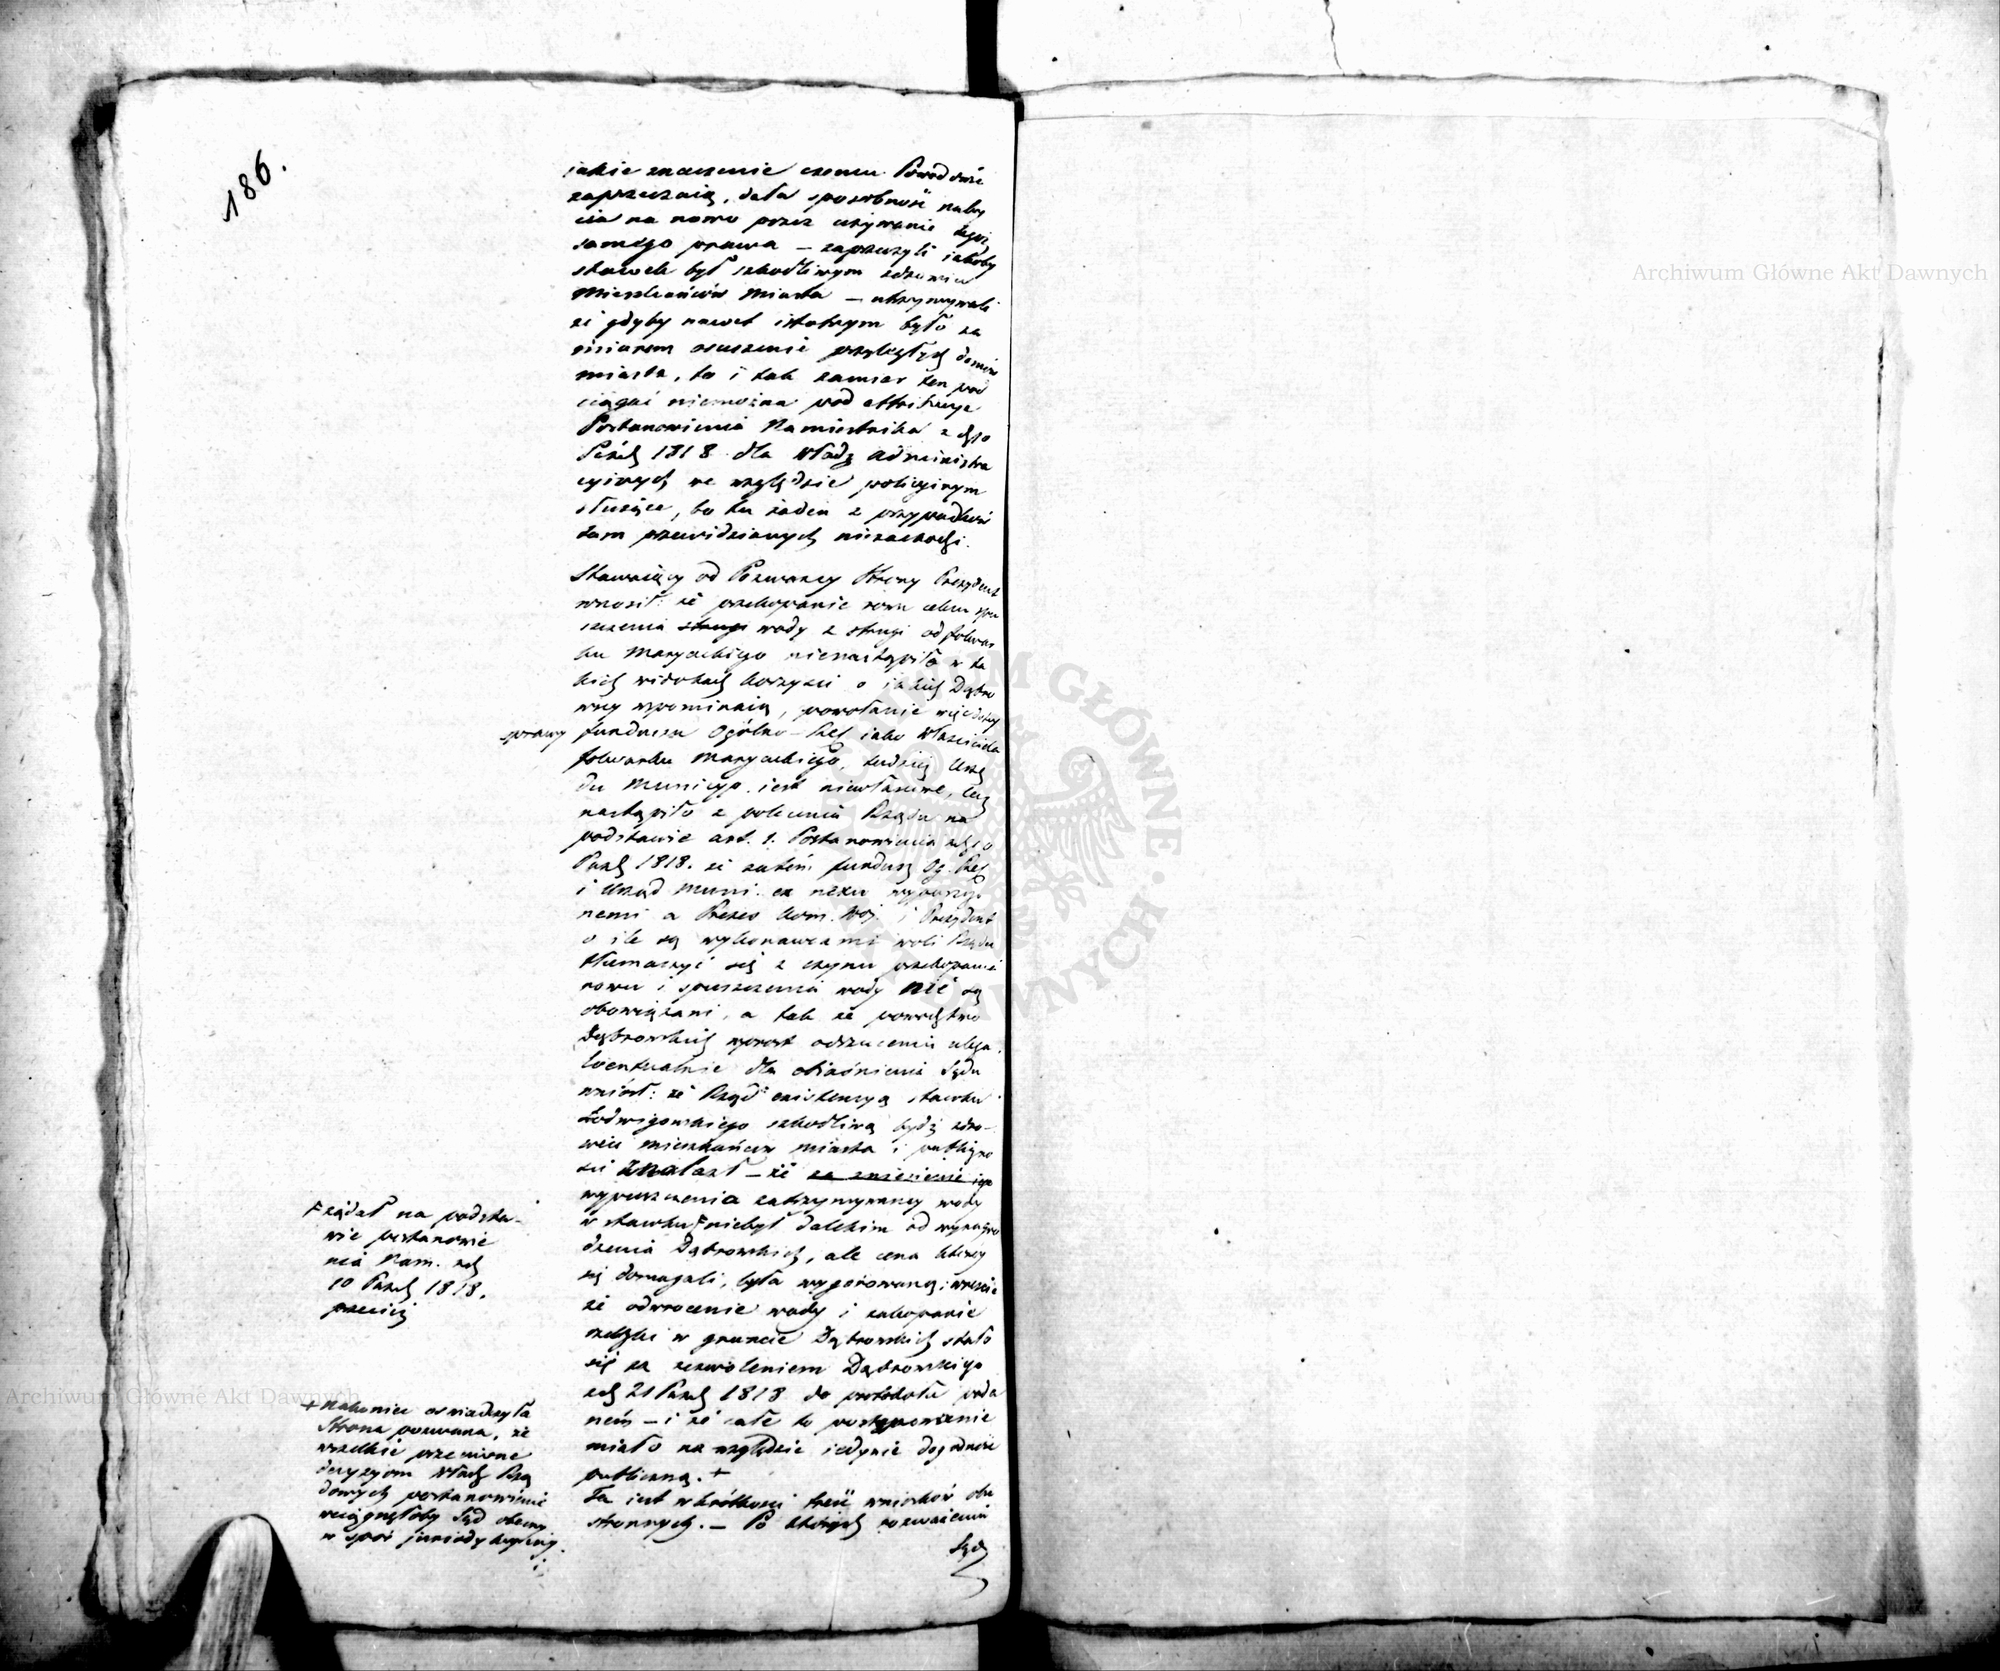 186.
jakie znaczenie czemu Powodowie
zaprzeczają, data sposobność naby
cia na nowo przez używanie tegoż
samego prawa – zaprzeczyli jakoby
stawek był szkodliwym zdrowiu
Mieszkańców Miasta – utrzymywali
że gdyby nawet istotnym było za
miarem osuszenie przyległych domów
miasta, to i tak zamiar ten pod
ciągać niemożna pod attribucye
Postanowienia Namiestnika z dgo
Paźd 1818 dla Władz Administra
cyinych we względzie policyinym
służące, bo tu żaden z przypadków
tam przewidzianych niezachodzi.
Stawaiący od Pozwaney Strony Prezydent
wnosił: że przekopanie rowu celem spu
szczenia strugi wody z strugi od folwar
ku Maryackiego nienastąpiło w ta
kich widokach korzyści o jakich Dąbro
wscy wspominaią, powołanie więc do tey
sprawy funduszu Ogólno – Rel jako Właściciela
folwarku Maryackiego, tudzież Urzę
du Municyp. jest niewłaściwe, lecz
nastąpiło z polecenia Rządu na
podstawie art. 1. Postanowienia z d 10
Paźd 1818. że zatem fundusz Og. Rel
i Urząd Muni. ex nexu wypuszczo
nemi a Prezes Kom. Woj. i Prezydent
o ile są wykonawcami woli Rządu
tłumaczyć się z czynu przekopania
rowu i spuszczenia wody nie są
obowiązani, a tak że powództwo
Dąbrowskich wprost odrzuceniu ulega.
Ewentualnie dla obiaśnienia Sądu
wniósł: że Rząd existencyą stawku
Ludwigowskiego szkodliwą bydź zdro-
wiu mieszkańców miasta i publiczno
ści znalazł – że za zniesienie jego
wypuszczenia zatrzymywaney wody
w stawku F niebył dalekim od wynagro
dzenia Dąbrowskich, ale cena którey
się domagali, była wygórowaną; wreszcie
że odwrócenie wody i zakopanie
rzeczki w gruncie Dąbrowskich stało
się za zezwoleniem Dąbrowskiego
z d 21 Paźd 1818 do protokołu poda
nem – i że całe to postępowanie
miało na względzie jedynie dogodność
publiczną. +
Ta jest w krótkości treść wniosków obu
stronnych. – Po których rozważeniu
Sąd
F żądał na podsta-
wie postanowie
nia Nam. z d
10 Paźd 1818.
przecież
+ Nakoniec oświadczyła
Strona pozwana, że
wszelkie przeciwne
decyzyom Władz Rzą
dowych postanowienie
wciągnęłoby Sąd obecny
w spór jurisdykcyiny.
Archiwum Główne Akt Dawnych
Archiwum Główne Akt Dawnych
ARCHIWUM GŁÓWNE AKT DAWNYCH